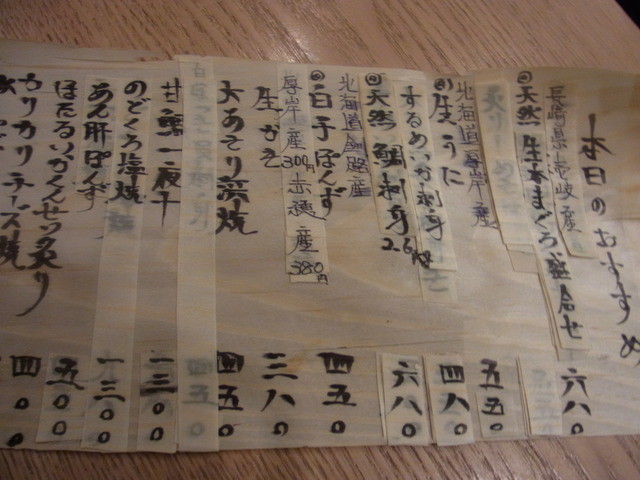 本日のおすすめ
長崎県壱岐産
◎天然生本まぐろ盛合せ 六八〇
北海道厚岸産
◎生うに 五五〇
するめいか刺身 四八〇
◎天然鯛刺身 2.6kg 六八〇
北海道釧路産
◎白子ぽんず 四五〇
厚岸産300円 赤穂産380円
生がき 三八〇
大あさり 四五〇
一夜干 一三〇〇
のどくろ塩焼 一三〇〇
あん肝ぽんず 五〇〇
ほたるいかくんせい炙り 四〇〇
カリカリチーズ焼